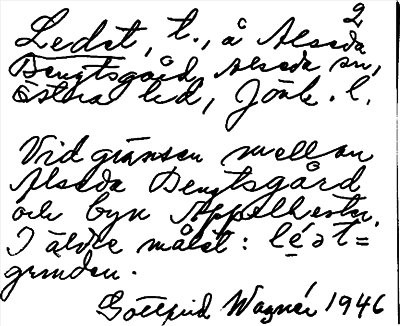 2
Ledet, t., å Alseda
Bengtsgård, Alseda sn,
Östra hd, Jönk. l.
Vid gränsen mellan
Alseda Bengtsgård
och byn Äppelhester.
I äldre målet: léət=
grinden.
Gottfrid Wagnér 1946